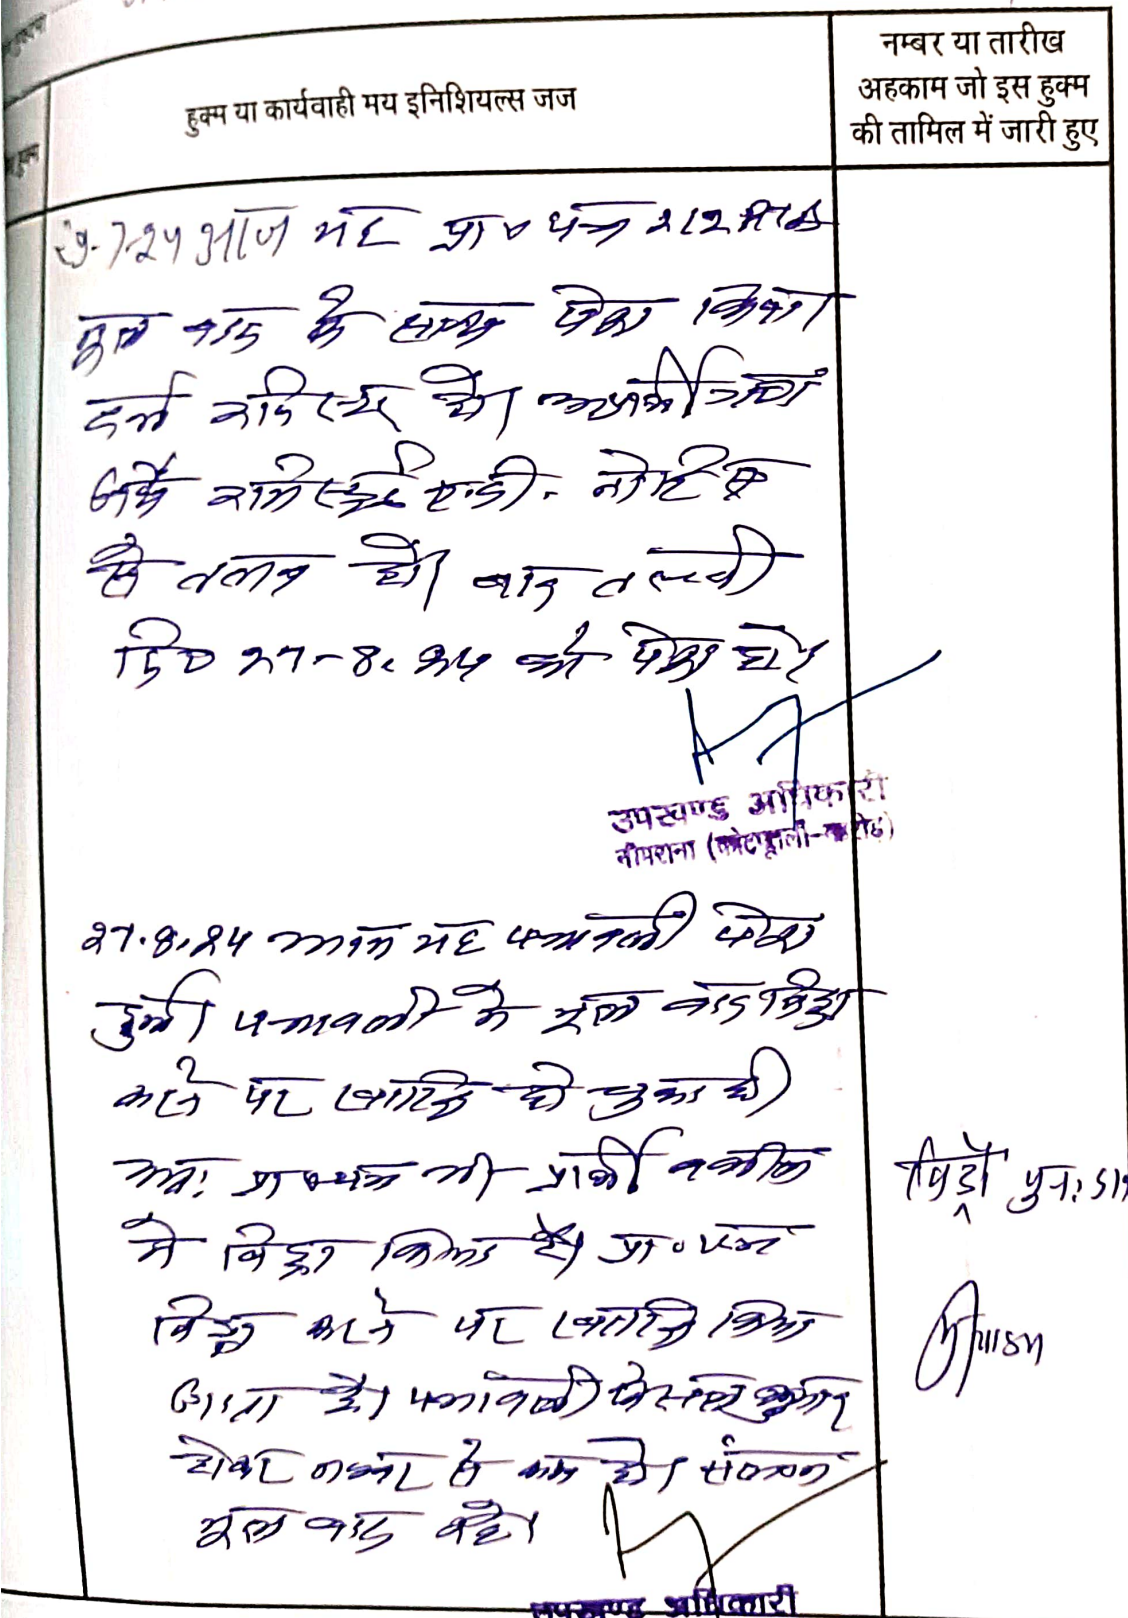 हुक्म या कार्यवाही मय इनिशियल्स जज
नम्बर या तारीख
अहकाम जो इस हुक्म
की तामिल में जारी हुए
आज यह प्रा० पत्र 212
मूल वाद के साथ पेश किया
दर्ज रजिस्टर हो।
जर्ये रजिस्टर्ड ए.डी. नोटिस
से तलब हो। बाद तलबी
दि० 27-8.24 को पेश हो।
उपखण्ड अधिकारी
नीमराना (कोटपूतली-बहरोड)
27.8.24 आज यह पत्रावली पेश
हुई। पत्रावली में मूल वाद विड्रा
करने पर खारिज हो चुका है।
अतः प्रा० पत्र भी प्रार्थी वकील
ने विड्रा किया है। प्रा० पत्र
विड्रा करने पर खारिज किया
जाता है। पत्रावली फैसल शुमार
होकर नम्बर से कम हो। संलग्न
मूल वाद रहे।
विड्रॉ पुनः
उपखण्ड अधिकारी